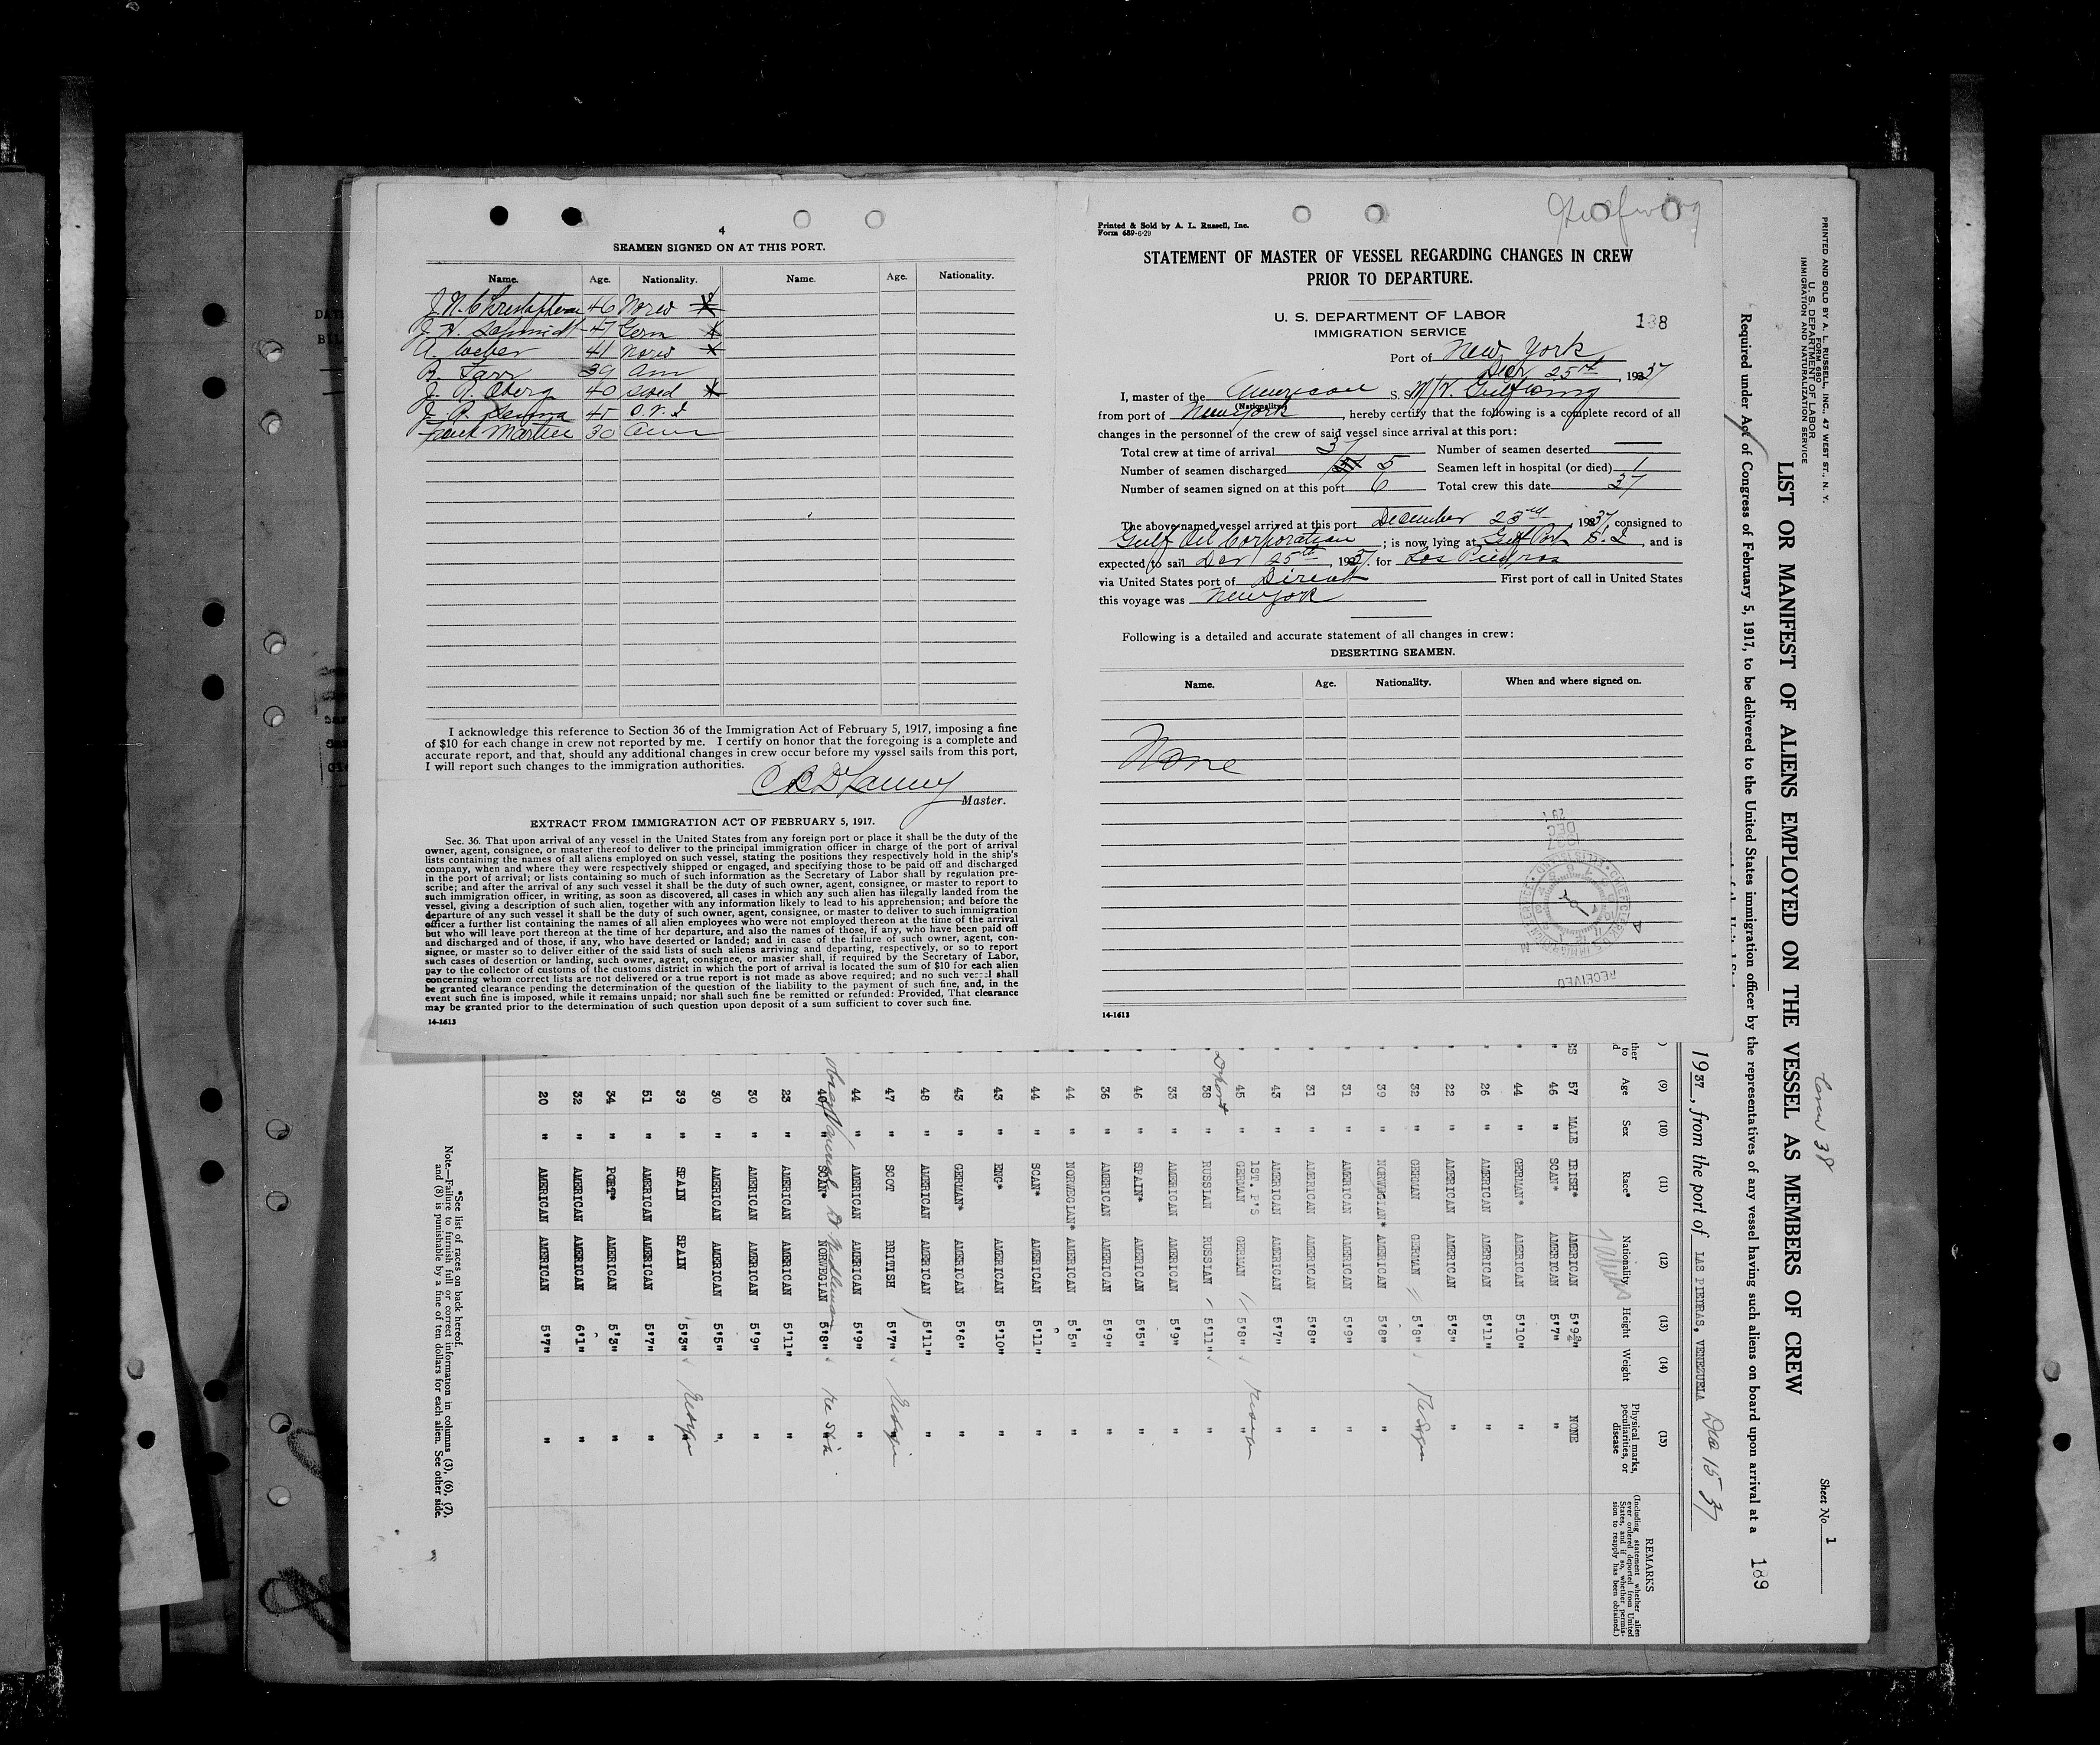 4
SEAMEN SIGNED ON AT THIS PORT.
Name. Age. Nationality. Name. Age. Nationality.
46 Norw
J. H. Schmidt 47 Germ
A. Weber 41 Norw
B. Farr 39 Am
J. A. Oberg 40 Swed
45
Frank 30 Amer
I acknowledge this reference to Section 36 of the Immigration Act of February 5, 1917, imposing a fine
of $10 for each change in crew not reported by me. I certify on honor that the foregoing is a complete and
accurate report, and that, should any additional changes in crew occur before my vessel sails from this port,
I will report such changes to the immigration authorities.
Master.
EXTRACT FROM IMMIGRATION ACT OF FEBRUARY 5, 1917.
Sec. 36. That upon arrival of any vessel in the United States from any foreign port or place it shall be the duty of the
owner, agent, consignee, or master thereof to deliver to the principal immigration officer in charge of the port of arrival
lists containing the names of all aliens employed on such vessel, stating the positions they respectively hold in the ship's
company, when and where they were respectively shipped or engaged, and specifying those to be paid off and discharged
in the port of arrival; or lists containing so much of such information as the Secretary of Labor shall by regulation pre-
scribe; and after the arrival of any such vessel it shall be the duty of such owner, agent, consignee, or master to report to
such immigration officer, in writing, as soon as discovered, all cases in which any such alien has illegally landed from the
vessel, giving a description of such alien, together with any information likely to lead to his apprehension; and before the
departure of any such vessel it shall be the duty of such owner, agent, consignee, or master to deliver to such immigration
officer a further list containing the names of all alien employees who were not employed thereon at the time of the arrival
but who will leave port thereon at the time of her departure, and also the names of those, if any, who have been paid off
and discharged and of those, if any, who have deserted or landed; and in case of the failure of such owner, agent, con-
signee, or master so to deliver either of the said lists of such aliens arriving and departing, respectively, or so to report
such cases of desertion or landing, such owner, agent, consignee, or master shall, if required by the Secretary of Labor,
pay to the collector of customs of the customs district in which the port of arrival is located the sum of $10 for each alien
concerning whom correct lists are not delivered or a true report is not made as above required; and no such vessel shall
be granted clearance pending the determination of the question of the liability to the payment of such fine, and, in the
event such fine is imposed, while it remains unpaid; nor shall such fine be remitted or refunded: Provided, That clearance
may be granted prior to the determination of such question upon deposit of a sum sufficient to cover such fine.
14-1613
Gulfwing
Printed & Sold by A. L. Russell, Inc.
Form 689-6-29
STATEMENT OF MASTER OF VESSEL REGARDING CHANGES IN CREW
PRIOR TO DEPARTURE.
U. S. DEPARTMENT OF LABOR
IMMIGRATION SERVICE
138
Port of New York
Dec 25th, 1937
I, master of the American S. S. M/V. Gulfwing
(Nationality)
from port of New York, hereby certify that the following is a complete record of all
changes in the personnel of the crew of said vessel since arrival at this port:
Total crew at time of arrival 37 Number of seamen deserted
Number of seamen discharged 5 Seamen left in hospital (or died) 1
Number of seamen signed on at this port 6 Total crew this date 37
The above-named vessel arrived at this port December 23rd, 1937, consigned to
Gulf Oil Corporation; is now lying at Gulf Port S. I., and is
expected to sail Dec 25th, 1937. for Las Piedras
via United States port of Direct First port of call in United States
this voyage was New York
Following is a detailed and accurate statement of all changes in crew:
DESERTING SEAMEN.
Name. Age. Nationality. When and where signed on.
None
1937
DEC
RECEIVED
14-1613
PRINTED AND SOLD BY A. L. RUSSELL, INC., 47 WEST ST., N. Y.
FORM 680
U. S. DEPARTMENT OF LABOR
IMMIGRATION AND NATURALIZATION SERVICE
Sheet No. 1
LIST OR MANIFEST OF ALIENS EMPLOYED ON THE VESSEL AS MEMBERS OF CREW
Required under Act of Congress of February 5, 1917, to be delivered to the United States immigration officer by the representatives of any vessel having such aliens on board upon arrival at a
189
1937, from the port of LAS PIEDRAS, VENEZUELA Dec 15 37
(9) (10) (11) (12) (13) (14) (15)
Age Sex Race* Nationality Height Weight Physical marks, peculiarities, or disease
REMARKS
(Including statement whether alien
ever ordered deported from United
States, and if so, whether permis-
sion to reapply has been obtained.)
57 MALE IRISH* AMERICAN 5'9½" NONE
46 " SCAN* AMERICAN 5'7" "
44 " GERMAN* AMERICAN 5'10" "
26 " AMERICAN AMERICAN 5'11" "
22 " AMERICAN AMERICAN 5'3" "
32 " GERMAN GERMAN 5'8"
39 " NORWEGIAN* AMERICAN 5'8" "
31 " AMERICAN AMERICAN 5'9" "
31 " AMERICAN AMERICAN 5'8" "
43 " AMERICAN AMERICAN 5'7" "
1ST. P'S
45 " GERMAN GERMAN 5'8" "
38 " RUSSIAN RUSSIAN 5'11" "
33 " AMERICAN AMERICAN 5'9" "
46 " SPAIN* AMERICAN 5'5" "
36 " AMERICAN AMERICAN 5'9" "
44 " NORWEGIAN* AMERICAN 5'5" "
44 " SCAN* AMERICAN 5'11" "
43 " ENG* AMERICAN 5'10" "
43 " GERMAN* AMERICAN 5'6" "
48 " AMERICAN AMERICAN 5'11" "
47 " SCOT BRITISH 5'7" "
44 " AMERICAN AMERICAN 5'9" "
40 " SCAN* NORWEGIAN 5'8" "
23 " AMERICAN AMERICAN 5'11" "
30 " AMERICAN AMERICAN 5'9" "
30 " AMERICAN AMERICAN 5'5" "
39 " SPAIN SPAIN 5'3" "
51 " AMERICAN AMERICAN 5'7" "
34 " PORT* AMERICAN 5'3" "
32 " AMERICAN AMERICAN 6'1" "
20 " AMERICAN AMERICAN 5'7" "
*See list of races on back hereof.
Note.—Failure to furnish full or correct information in columns (3), (6), (7),
and (8) is punishable by a fine of ten dollars for each alien. See other side.